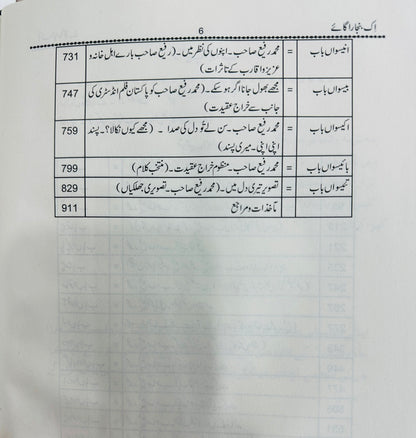 اِک بنجارا گائے
6
انیسواں باب = محمد رفیع صاحب۔ اپنوں کی نظر میں۔ (رفیع صاحب بارے اہل خانہ و 731
عزیز و اقارب کے تاثرات)
بیسواں باب = مجھے بھول جانا اگر ہو سکے۔ (محمد رفیع صاحب کو پاکستان فلم انڈسٹری کی 747
جانب سے خراج عقیدت)
اکیسواں باب = محمد رفیع صاحب۔ سن لے تُو دل کی صدا ۔ (مجھے کیوں نکالا؟۔ پسند 759
اپنی اپنی۔ میری پسند)
بائیسواں باب = محمد رفیع صاحب۔ منظوم خراج عقیدت۔ (منتخب کلام) 799
تئیسواں باب = تصویر تیری دل میں۔ (محمد رفیع صاحب۔ تصویری جھلکیاں) 829
ماٰخذات و مراجع 911